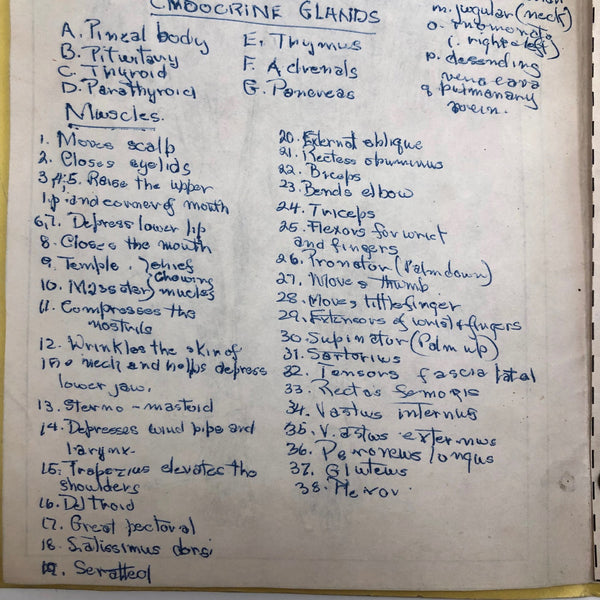 ENDOCRINE GLANDS
A. Pineal body
B. Pituitary
C. Thyroid
D. Parathyroid
E. Thymus
F. Adrenals
G. Pancreas
m. jugular (neck)
i. right & left)
p. desending
vena cava
q pulmonary
vein.
Muscles.
1. Moves scalp
2. Closes eyelids
3,4,5. Raise the upper
lip and corner of mouth
6,7. Depress lower lip
8. Closes the mouth
9. Temple, } chief
chowing
10. Masseter} mucles
11. Compresses the
nostrils
12. Wrinkles the skin of
neck and helps depress
lower jaw.
13. Sterno-mastoid
14. Depresses wind pipe and
larynx.
15. Trapezius elevates the
shoulders
16. Delthoid
17. Great pectoral
18. Salissimus dorsi
19. Seratted
20. External oblique
21. Rectess
22. Biceps
23. Bends elbow
24. Triceps
25. Flexors for wrict
and fingers
26. Pronator (Palm down)
27. Moves thumb
28. Moves little finger
29. Extensors of & fingers
30. Supinator (Palm up)
31. Sartorius
32. Tensors fascia
33. Rectos Semoris
34. Vastus internus
35. Vastus externus
36. Peroneus longus
37. Gluteus
38.